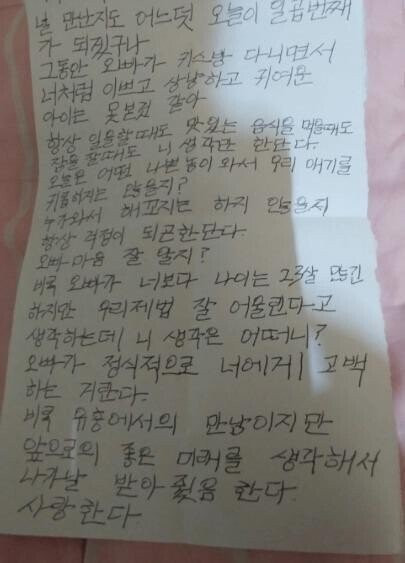 널 만난지도 어느덧 오늘이 일곱번째
가 되었구나
그동안 오빠가 키스방 다니면서
너처럼 이쁘고 상냥하고 귀여운
아이는 못본것 같아
항상 일을할때도 맛있는 음식을 먹을때도
잠을 잘때도 니 생각만 한단다.
오늘은 어떤 나쁜놈이 와서 우리 애기를
키롭히지는 않을지?
누가와서 해꼬지는 하지 않을지
항상 걱정이 되곤한단다.
오빠마음 잘 알지?
비록 오빠가 너보다 나이는 23살 많긴
하지만 우리제법 잘 어울린다고
생각하는데 니 생각은 어떠니?
오빠가 정식적으로 너에게 고백
하는 거란다.
비록 유흥에서의 만남이지만
앞으로의 좋은 미래를 생각해서
나가날 받아 줬음 한다.
사랑한다